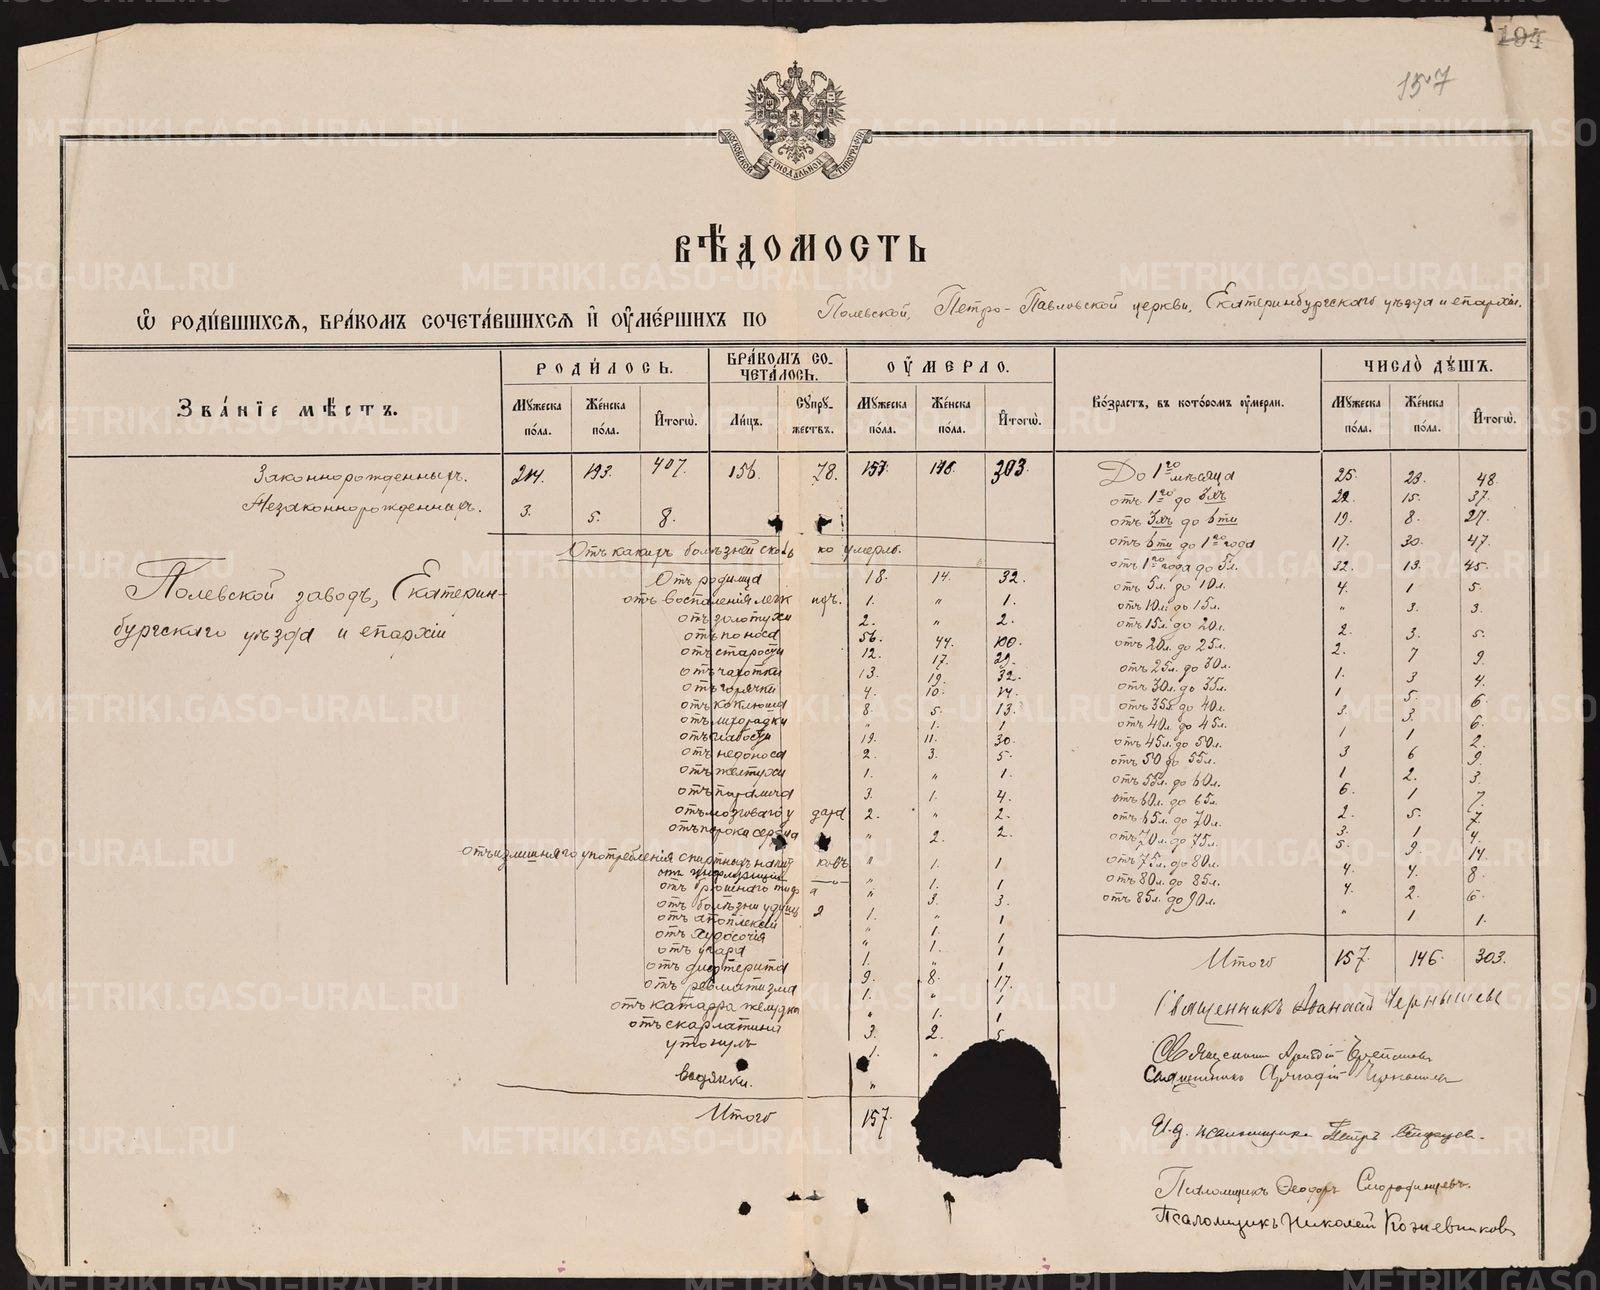 194
157
МОСКОВСКОЙ СѴНОДАЛЬНОЙ ТИПОГРАФІИ
ВѢДОМОСТЬ
Ѡ РОДИ́ВШИХСЯ, БРА́КОМЪ СОЧЕТА́ВШИХСЯ И҆ ОУ҆МЕ́РШИХЪ ПО Полевской, Петро-Павловской церкви, Екатеринбургскаго уѣзда и епархіи.
ЗВА́НІЕ МѢ́СТЪ. РОДИ́ЛОСЬ. БРА́КОМЪ СОЧЕТА́ЛОСЬ. ОУ҆́МЕРЛО. Во́зрастъ, въ кото́ромъ оу҆́мерли. ЧИСЛО̀ ДꙊ́ШЪ.
Мꙋ́жеска по́ла. Же́нска по́ла. И҆тогѡ̀. Ли́цъ. Сꙋпрꙋ́жествъ. Мꙋ́жеска по́ла. Же́нска по́ла. И҆тогѡ̀. Мꙋ́жеска по́ла. Же́нска по́ла. И҆тогѡ̀.
Законнорожденныхъ. 214. 193. 407. 156. 78. 157. 146. 303
Незаконнорожденныхъ. 3. 5. 8.
Полевской заводъ, Екатерин-
бургскаго уѣзда и епархіи
Отъ какихъ болѣзней сколько умерло.
Отъ родимца 18. 14. 32.
отъ воспаленія легкихъ. 1. " 1.
отъ золотухи 2. " 2.
отъ поноса 56. 44. 100.
отъ старости 12. 17. 29.
отъ чахотки 13. 19. 32.
отъ горячки 4. 10. 14.
отъ коклюша 8. 5. 13.
отъ лихорадки " 1. 1
отъ слабости 19. 11. 30.
отъ недоноса 2. 3. 5.
отъ желтухи 1. " 1.
отъ паралича 3. 1. 4.
отъ мозгового удара 2. " 2.
отъ порока сердца " 2. 2.
отъ излишняго употребленія спиртныхъ напитковъ " 1. 1
отъ брюшного тифа
отъ апоплексіи
отъ худосочія
отъ угара
отъ дифтерита
отъ ревматизма
отъ катарра желудка
отъ скарлатины
утонулъ
водянки.
Итого 157.
До 1го мѣсяца 25. 23. 48.
отъ 1го до 3хъ 22. 15. 37.
отъ 3хъ до 6ти 19. 8. 27.
отъ 6ти до 1го года 17. 30. 47.
отъ 1го года до 5л. 32. 13. 45.
отъ 5л. до 10л. 4. 1 5.
отъ 10л. до 15л. " 3. 3.
отъ 15л. до 20л. 2. 3. 5.
отъ 20л. до 25л. 2. 7 9.
отъ 25л. до 30л. 1. 3 4.
отъ 30л. до 35л. 1 5. 6.
отъ 35л. до 40л. 3. 3. 6.
отъ 40л. до 45л. 1 1 2.
отъ 45л. до 50л. 3 6 9.
отъ 50 до 55л. 1 2. 3.
отъ 55л. до 60л. 6. 1 7.
отъ 60л. до 65л. 2. 5. 7.
отъ 65л. до 70л. 3. 1 4.
отъ 70л. до 75л. 5. 9. 14.
отъ 75л. до 80л. 4. 4. 8.
отъ 80л. до 85л. 4. 2. 6.
отъ 85л. до 90л. " 1 1.
Итого 157. 146. 303.
Священникъ Аѳанасій Чернышевъ
Священникъ
Священникъ Аркадій
И.д. псаломщика Петръ
Псаломщикъ Ѳеодоръ Смородинцевъ.
Псаломщикъ Николай Кожевниковъ
METRIKI.GASO-URAL.RU